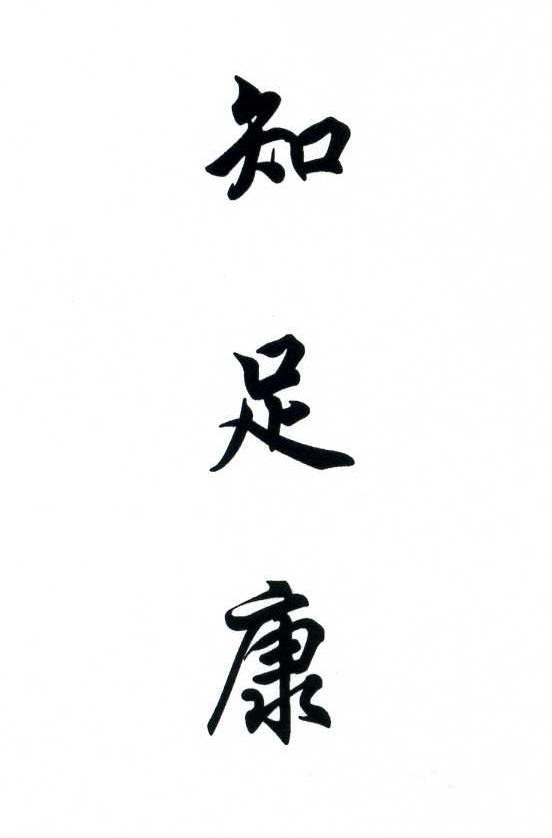 知足康